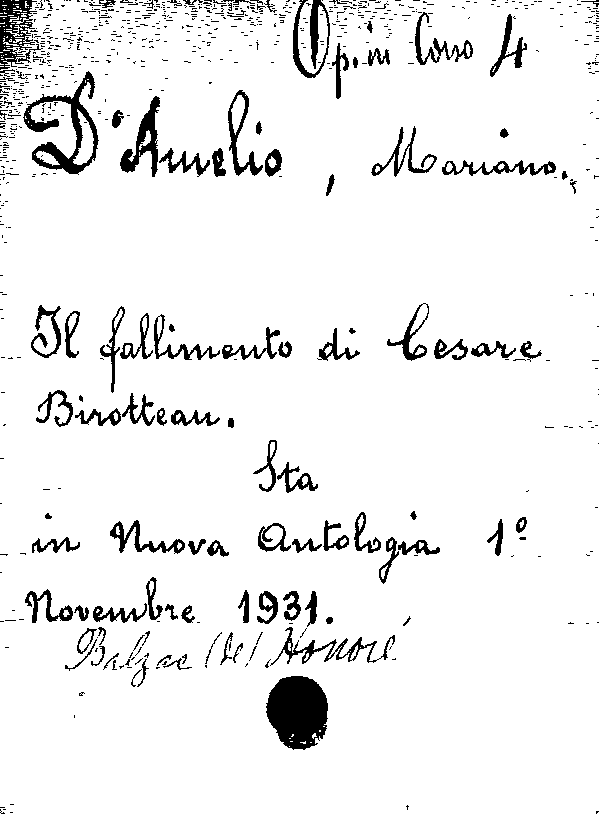 Op. in Corso 4
D'Amelio, Mariano.
Il fallimento di Cesare
Birotteau.
Sta
in Nuova Antologia 1º
Novembre 1931.
Balzac (de) Honoré